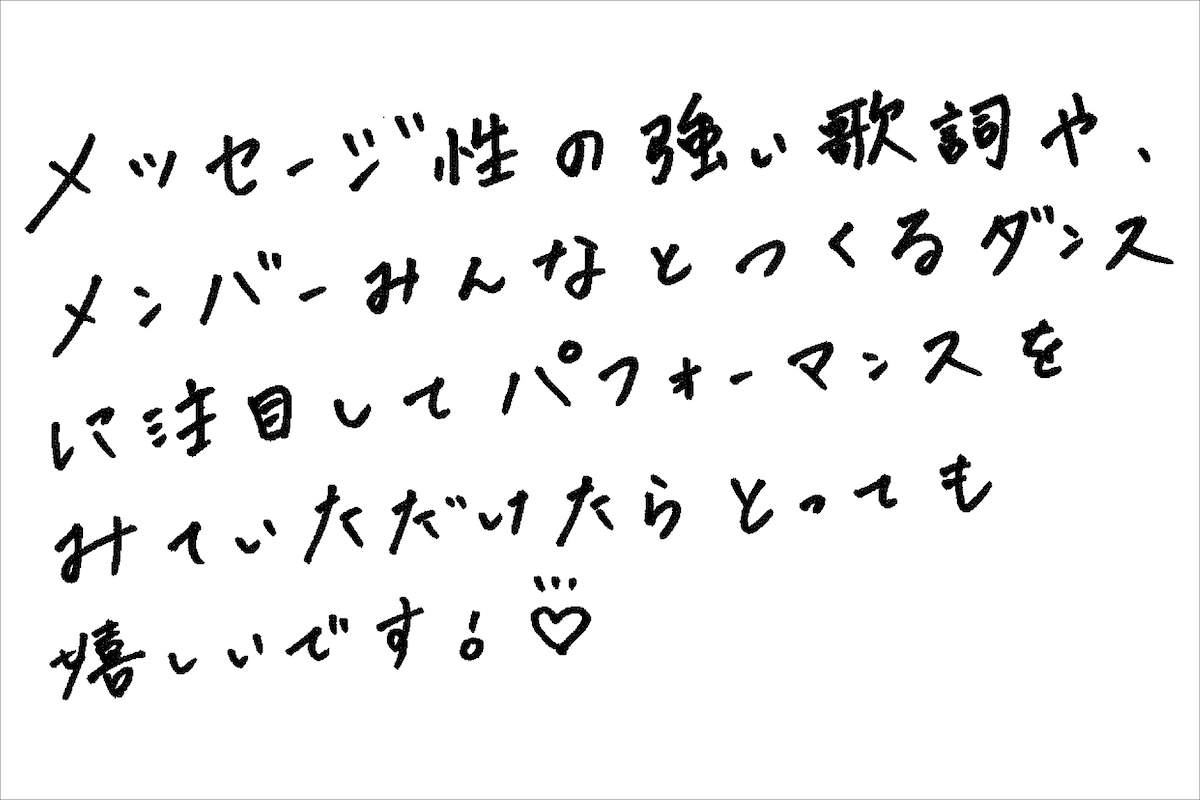 メッセージ性の強い歌詞や、
メンバーみんなとつくるダンス
に注目してパフォーマンスを
みていただけたらとっても
嬉しいです！♡